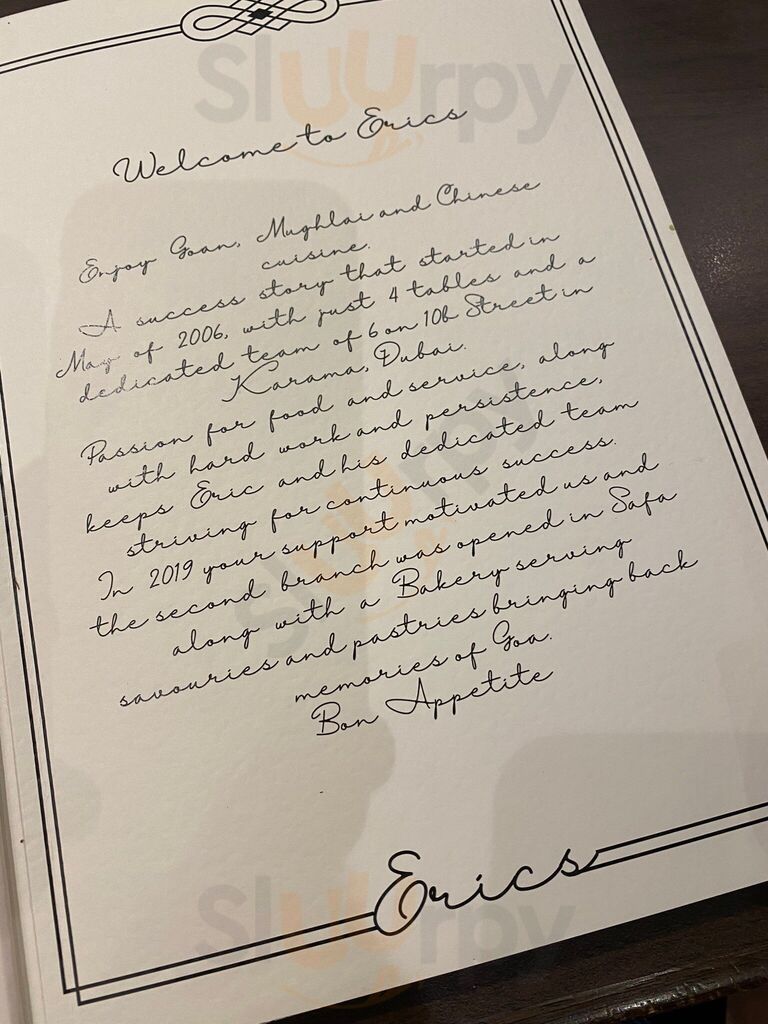 Sluurpy
Welcome to Erics
Enjoy Goan, Mughlai and Chinese
cuisine.
A success story that started in
May of 2006, with just 4 tables and a
dedicated team of 6 on 10b Street in
Karama, Dubai.
Passion for food and service, along
with hard work and persistence,
keeps Eric and his dedicated team
striving for continuous success.
In 2019 your support motivated us and
the second branch was opened in Safa
along with a Bakery serving
savouries and pastries bringing back
memories of Goa.
Bon Appetite
Erics
Sluurpy